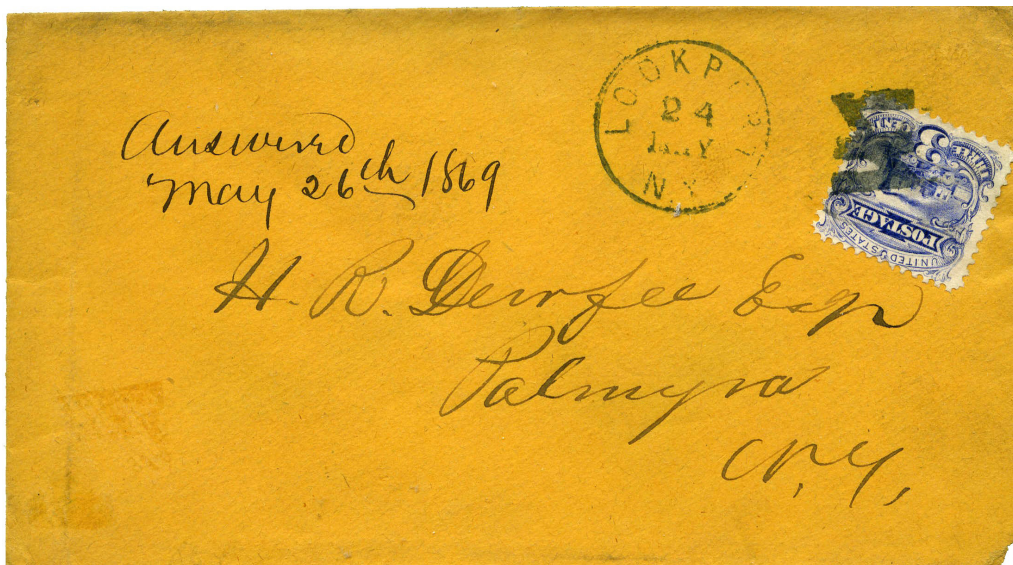 Answered
May 26th 1869
LOCKPORT
24
MAY
N.Y.
UNITED STATES
POSTAGE
H. R. Durfee Esqr
Palmyra
N. Y.